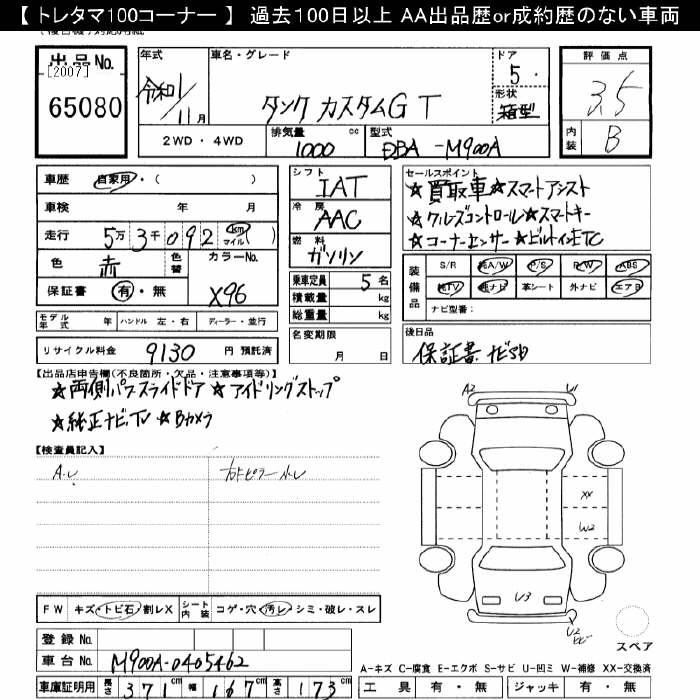 【 トレタマ100コーナー 】 過去100日以上 AA出品歴or成約歴のない車両
出品No.
[2007]
65080
年式
令和1/11月
車名・グレード
タンク カスタムG T
ドア
5
形状
箱型
評価点
3.5
内装
B
2WD・4WD
排気量
1000 cc
型式
DBA-M900A
車歴 自家用・( )
車検 年 月
走行 5万3千092 km マイル( )
色 赤 色替 カラーNo.
保証書 有・無 X96
モデル年式 年 ハンドル 左・右 ディーラー・並行
リサイクル料金 9130 円 預託済
シフト
IAT
冷房
AAC
燃料
ガソリン
乗車定員 5 名
積載量 kg
総重量 kg
名変期限
月 日
セールスポイント
★買取車★スマートアシスト
★クルーズコントロール★スマートキー
★コーナーセンサー★ビルトインETC
装備品
S/R 純A/W P/S P/W ABS
純TV 純ナビ 革シート 外ナビ エアB
ナビ型番:
後日品
保証書 ナビSD
【出品店申告欄(不良箇所・欠品・注意事項等)】
★両側パワースライドドア ★アイドリングストップ
★純正ナビTV ★Bカメラ
【検査員記入】
A・U
A2 U1
XX
W2
U3
U2
スペア
FW キズ・トビ石・割レX シート内装 コゲ・穴・汚レ・シミ・破レ・スレ
登録No.
車台No. M900A-0405462
車庫証明用 長さ 371 cm 幅 167 cm 高さ 173 cm
A-キズ C-腐食 E-エクボ S-サビ U-凹ミ W-補修 XX-交換済
工具 有・無 ジャッキ 有・無